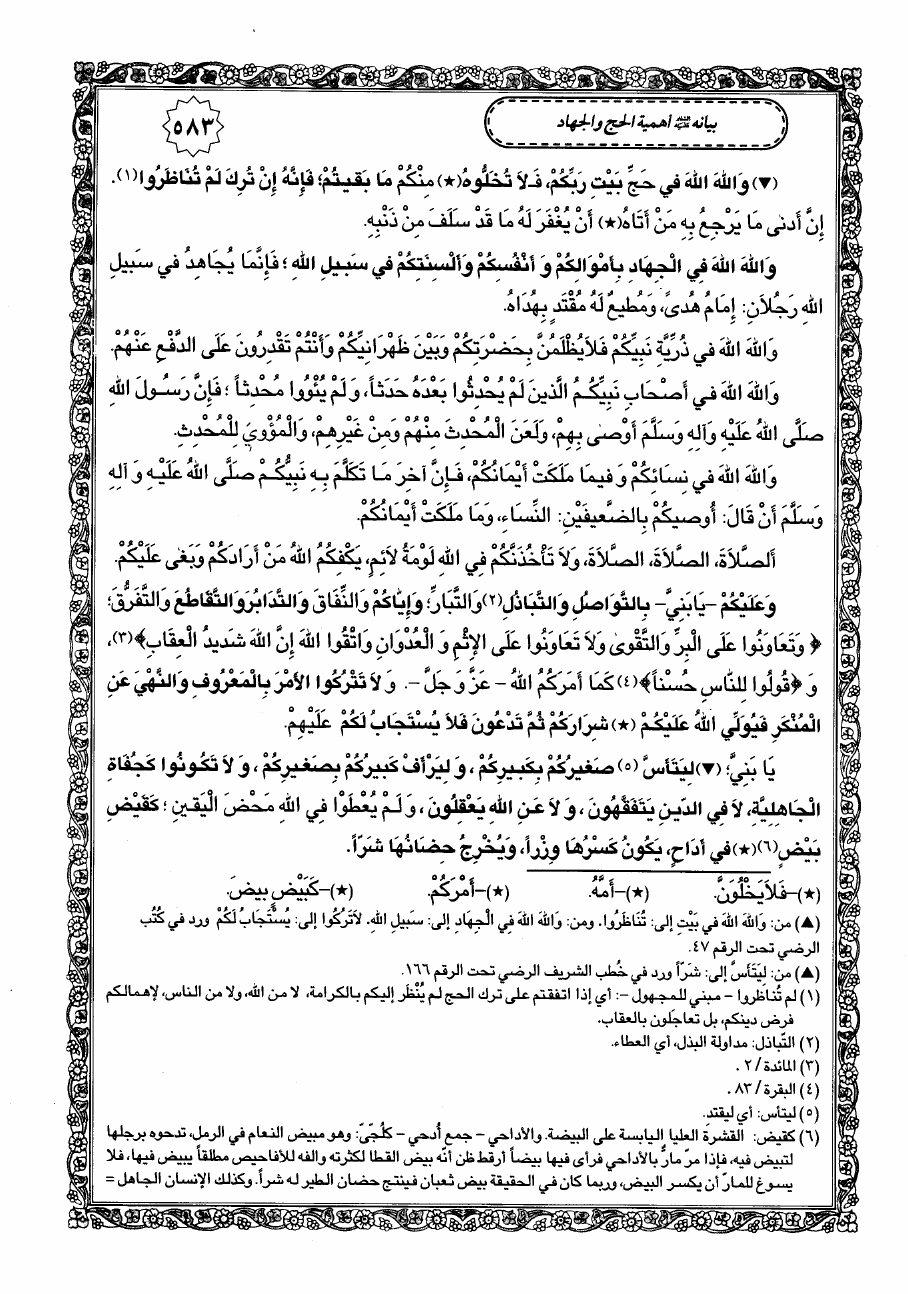 بيانه عليه السلام أهمية الحج والجهاد
٥٨٣
(▼) وَاللهَ اللهَ في حَجِّ بَيْتِ رَبِّكُمْ، فَلاَ تُخَلُّوهُ(★) مِنْكُمْ مَا بَقيتُمْ؛ فَإِنَّهُ إِنْ تُرِكَ لَمْ تُنَاظَرُوا(١).
إِنَّ أَدنى مَا يَرْجِعُ بِهِ مَنْ أَتَاهُ(★) أَنْ يُغْفَرَ لَهُ مَا قَدْ سَلَفَ مِنْ ذَنْبِهِ.
وَاللهَ اللهَ فِي الْجِهَادِ بِأَمْوَالِكُمْ وَ أَنْفُسِكُمْ وَأَلْسِنَتِكُمْ في سَبيلِ اللهِ ؛ فَإِنَّمَا يُجَاهِدُ في سَبيلِ
اللهِ رَجُلاَنِ: إِمَامُ هُدىً، وَمُطيعٌ لَهُ مُقْتَدٍ بِهُدَاهُ.
وَاللهَ اللهَ في ذُرِّيَّةِ نَبِيِّكُمْ فَلاَيُظْلَمُنَّ بِحَضْرَتِكُمْ وَبَيْنَ ظَهْرَانِيكُمْ وَأَنْتُمْ تَقْدِرُونَ عَلَى الدَّفْعِ عَنْهُمْ.
وَاللهَ اللهَ في أَصْحَابِ نَبِيِّكُمُ الَّذينَ لَمْ يُحْدِثُوا بَعْدَهُ حَدَثاً، وَ لَمْ يُئْوُوا مُحْدِثاً ؛ فَإِنَّ رَسُولَ اللهِ
صَلَّى اللهُ عَلَيْهِ وَآلِهِ وَسَلَّمَ أَوْصى بِهِمْ، وَلَعَنَ الْمُحْدِثَ مِنْهُمْ وَمِنْ غَيْرِهِمْ، وَالْمُؤْوِيَ لِلْمُحْدِثِ.
وَاللهَ اللهَ في نِسَائِكُمْ وَ فيمَا مَلَكَتْ أَيْمَانُكُمْ، فَإِنَّ آخِرَ مَا تَكَلَّمَ بِهِ نَبِيُّكُمْ صَلَّى اللهُ عَلَيْهِ وَ آلِهِ
وَسَلَّمَ أَنْ قَالَ: أُوصيكُمْ بِالضَّعيفَيْنِ: النِّسَاءِ، وَمَا مَلَكَتْ أَيْمَانُكُمْ.
أَلصَّلاَةَ، الصَّلاَةَ، الصَّلاَةَ، وَلاَ تَأْخُذَنَّكُمْ فِي اللهِ لَوْمَةُ لاَئِمٍ، يَكْفِكُمُ اللهُ مَنْ أَرَادَكُمْ وَبَغى عَلَيْكُمْ.
وَعَلَيْكُمْ –يَابَنِيَّ– بِالتَّوَاصُلِ وَالتَّبَاذُلِ(٢)وَالتَّبَارِّ؛ وَإِيَّاكُمْ وَالنِّفَاقَ وَالتَّدَابُرَ وَالتَّقَاطُعَ وَالتَّفَرُّقَ؛
﴿ وَتَعَاوَنُوا عَلَى الْبِرِّ وَالتَّقْوى وَلاَ تَعَاوَنُوا عَلَى الإِثْمِ وَ الْعُدْوَانِ وَاتَّقُوا اللهَ إِنَّ اللهَ شَديدُ الْعِقَابِ﴾(٣)،
وَ ﴿قُولُوا لِلنَّاسِ حُسْناً﴾(٤) كَمَا أَمَرَكُمُ اللهُ – عَزَّ وَ جَلَّ –. وَ لاَ تَتْرُكُوا الأَمْرَ بِالْمَعْرُوفِ وَالنَّهْيَ عَنِ
الْمُنْكَرِ فَيُوَلِّيَ اللهُ عَلَيْكُمْ (★) شِرَارَكُمْ ثُمَّ تَدْعُونَ فَلاَ يُسْتَجَابُ لَكُمْ عَلَيْهِمْ.
يَا بَنِيَّ؛ (▼)لِيَتَأَسَّ (٥) صَغيرُكُمْ بِكَبيرِكُمْ ، وَ لْيَرْأَفْ كَبيرُكُمْ بِصَغيرِكُمْ ، وَ لاَ تَكُونُوا كَجُفَاةِ
الْجَاهِلِيَّةِ، لاَ فِي الدّينِ يَتَفَقَّهُونَ ، وَ لاَ عَنِ اللهِ يَعْقِلُونَ ، وَ لَمْ يُعْطَوْا فِي اللهِ مَحْضَ الْيَقينِ ؛ كَقَيْضِ
بَيْضٍ(٦)(★)في أَدَاحٍ، يَكُونُ كَسْرُهَا وِزْراً، وَيُخْرِجُ حِضَانُهَا شَرّاً.
(★)–فَلاَيَخْلُوَنَّ. (★)–أَمَّهُ. (★)–أَمْرَكُمْ. (★)–كَبَيْضٍ بيضَ.
(▲) من: وَاللهَ اللهَ في بَيْتِ إلى: تُنَاظَرُوا. ومن: وَاللهَ اللهَ فِي الْجِهَادِ إلى: سَبيلِ اللهِ. لاَتَرْكُوا إلى: يُسْتَجَابُ لَكُمْ ورد في كُتُب
الرضي تحت الرقم ٤٧.
(▲) من: لِيَتَأَسَّ إلى: شَرّاً ورد في خُطب الشريف الرضي تحت الرقم ١٦٦.
(١) لم تُناظروا – مبني للمجهول –: أي إذا اتفقتم على ترك الحج لم يُنْظَر إليكم بالكرامة، لا من الله، ولا من الناس، لإهمالكم
فرض دينكم، بل تعاجَلون بالعقاب.
(٢) التّباذل: مداولة البذل، أي العطاء.
(٣) المائدة / ٢ .
(٤) البقرة / ٨٣ .
(٥) ليتأس: أي ليقتدِ.
(٦) كقيض: القشرة العليا اليابسة على البيضة. والأداحي – جمع أُدحي – كلُجّىّ: وهو مبيض النعام في الرمل، تدحوه برجلها
لتبيض فيه، فإذا مرّ مارٌّ بالأداحي فرأى فيها بيضاً أرقط ظن أنّه بيض القطا لكثرته وإلفه للأفاحيص مطلقاً يبيض فيها، فلا
يسوغ للمارّ أن يكسر البيض، وربما كان في الحقيقة بيض ثعبان فينتج حضان الطير له شراً. وكذلك الإنسان الجاهل =